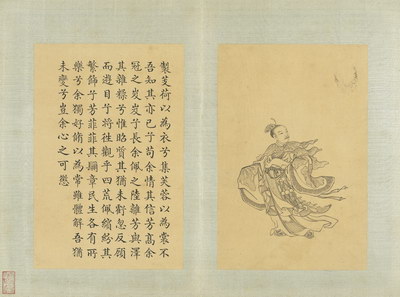 製芰荷以為衣兮集芙蓉以為裳不
吾知其亦已兮苟余情其信芳高余
冠之岌岌兮長余佩之陸離芳與澤
其雜糅兮惟昭質其猶未虧忽反顧
而遊目兮將往觀乎四荒佩繽紛其
繁飾兮芳菲菲其彌章民生各有所
樂兮余獨好脩以為常雖體解吾猶
未變兮豈余心之可懲